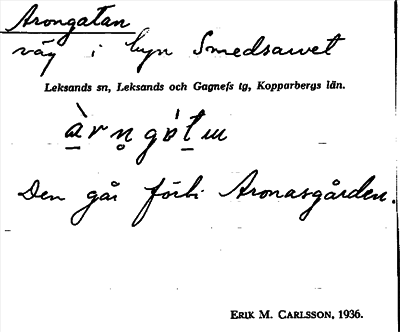 Arongatan
väg i byn Smedsarvet
Leksands sn, Leksands och Gagnefs tg, Kopparbergs län.
Den går förbi Aronasgården.
ERIK M. CARLSSON, 1936.